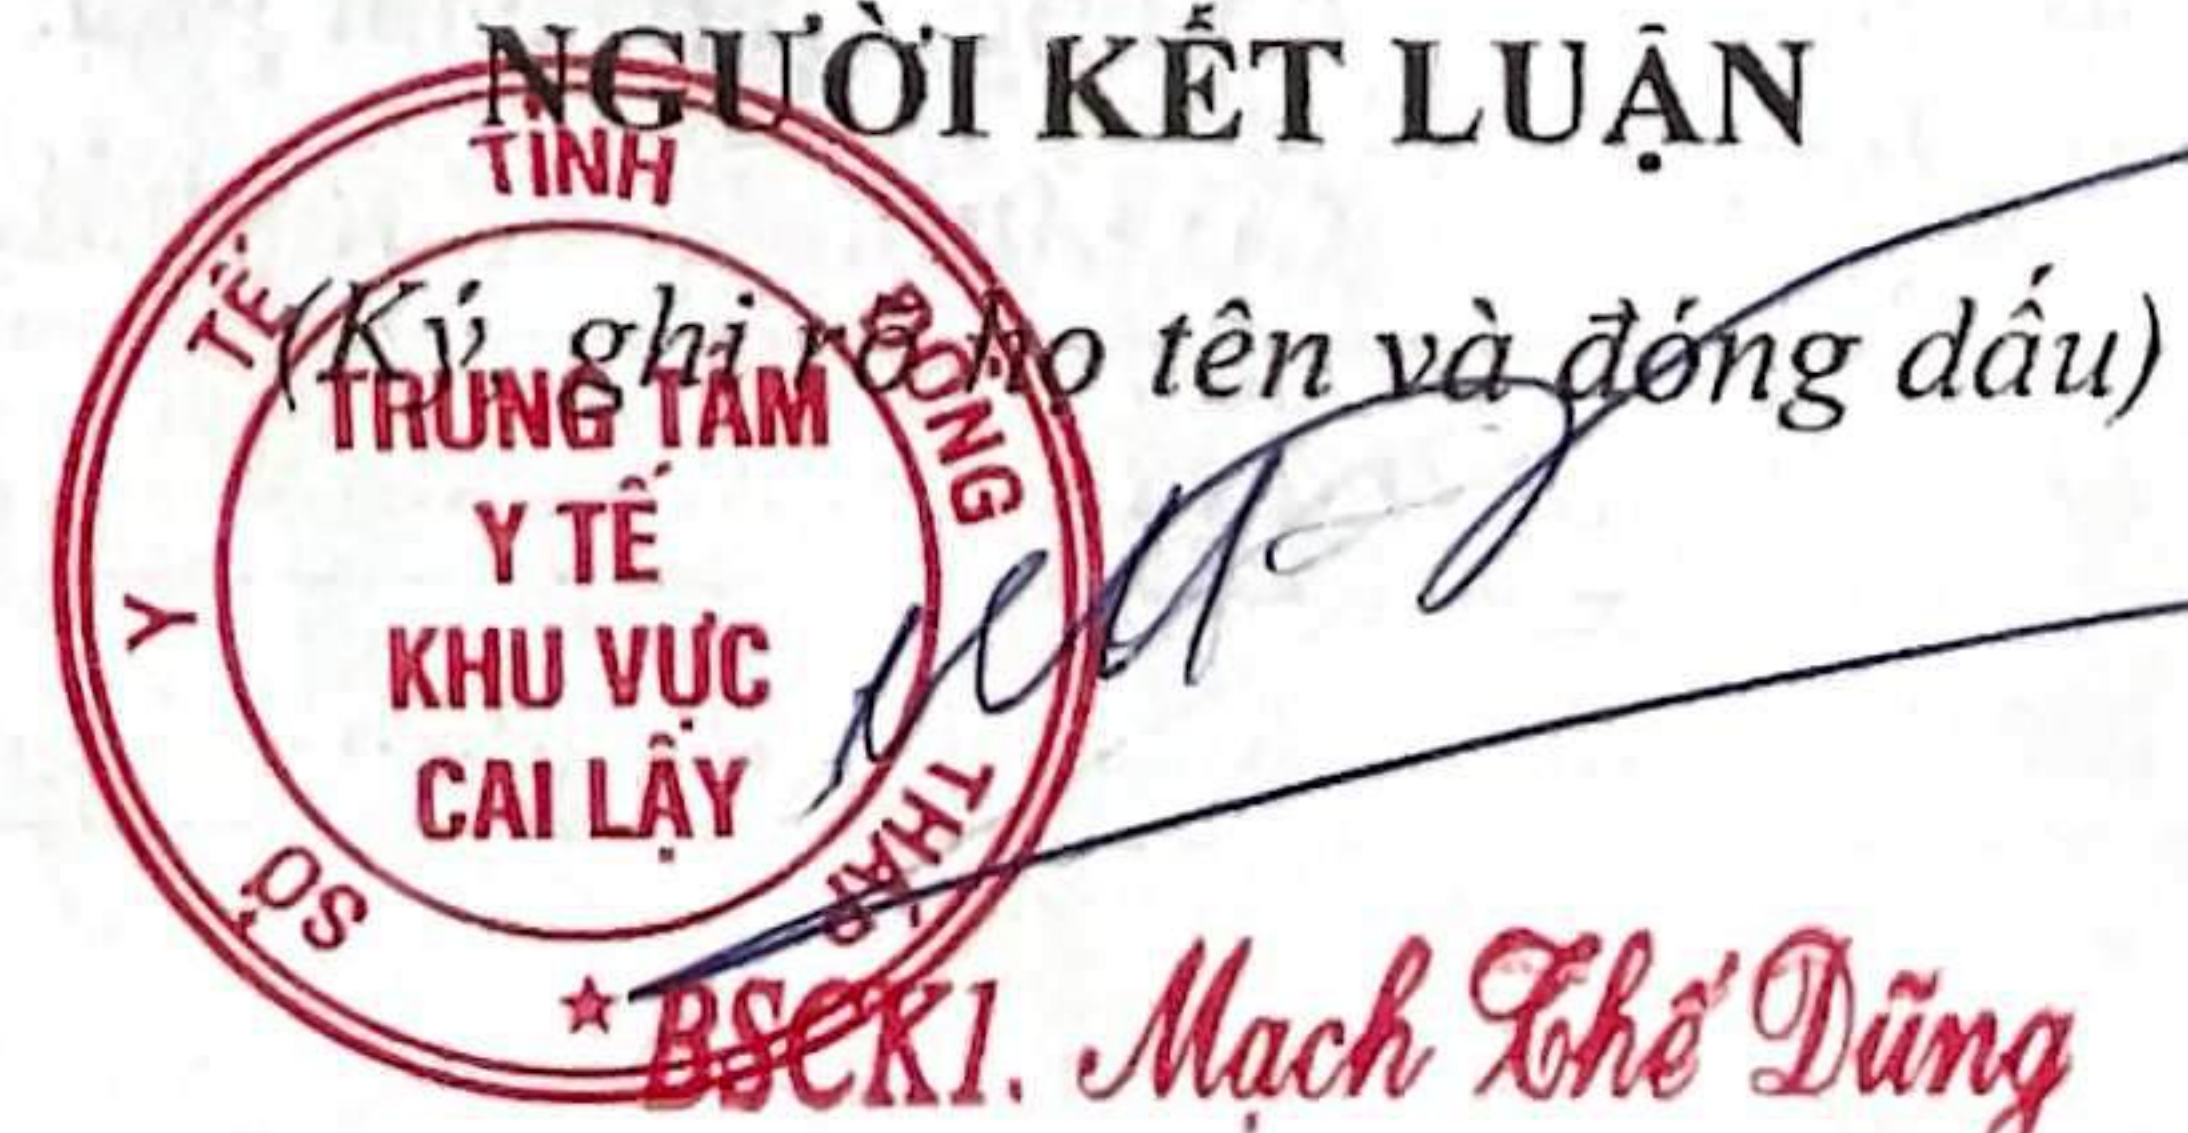 NGƯỜI KẾT LUẬN
(Ký, ghi rõ họ tên và đóng dấu)
SỞ Y TẾ TỈNH ĐỒNG THÁP
TRUNG TÂM
Y TẾ
KHU VỰC
CAI LẬY
★
BSCK1. Mạch Thế Dũng